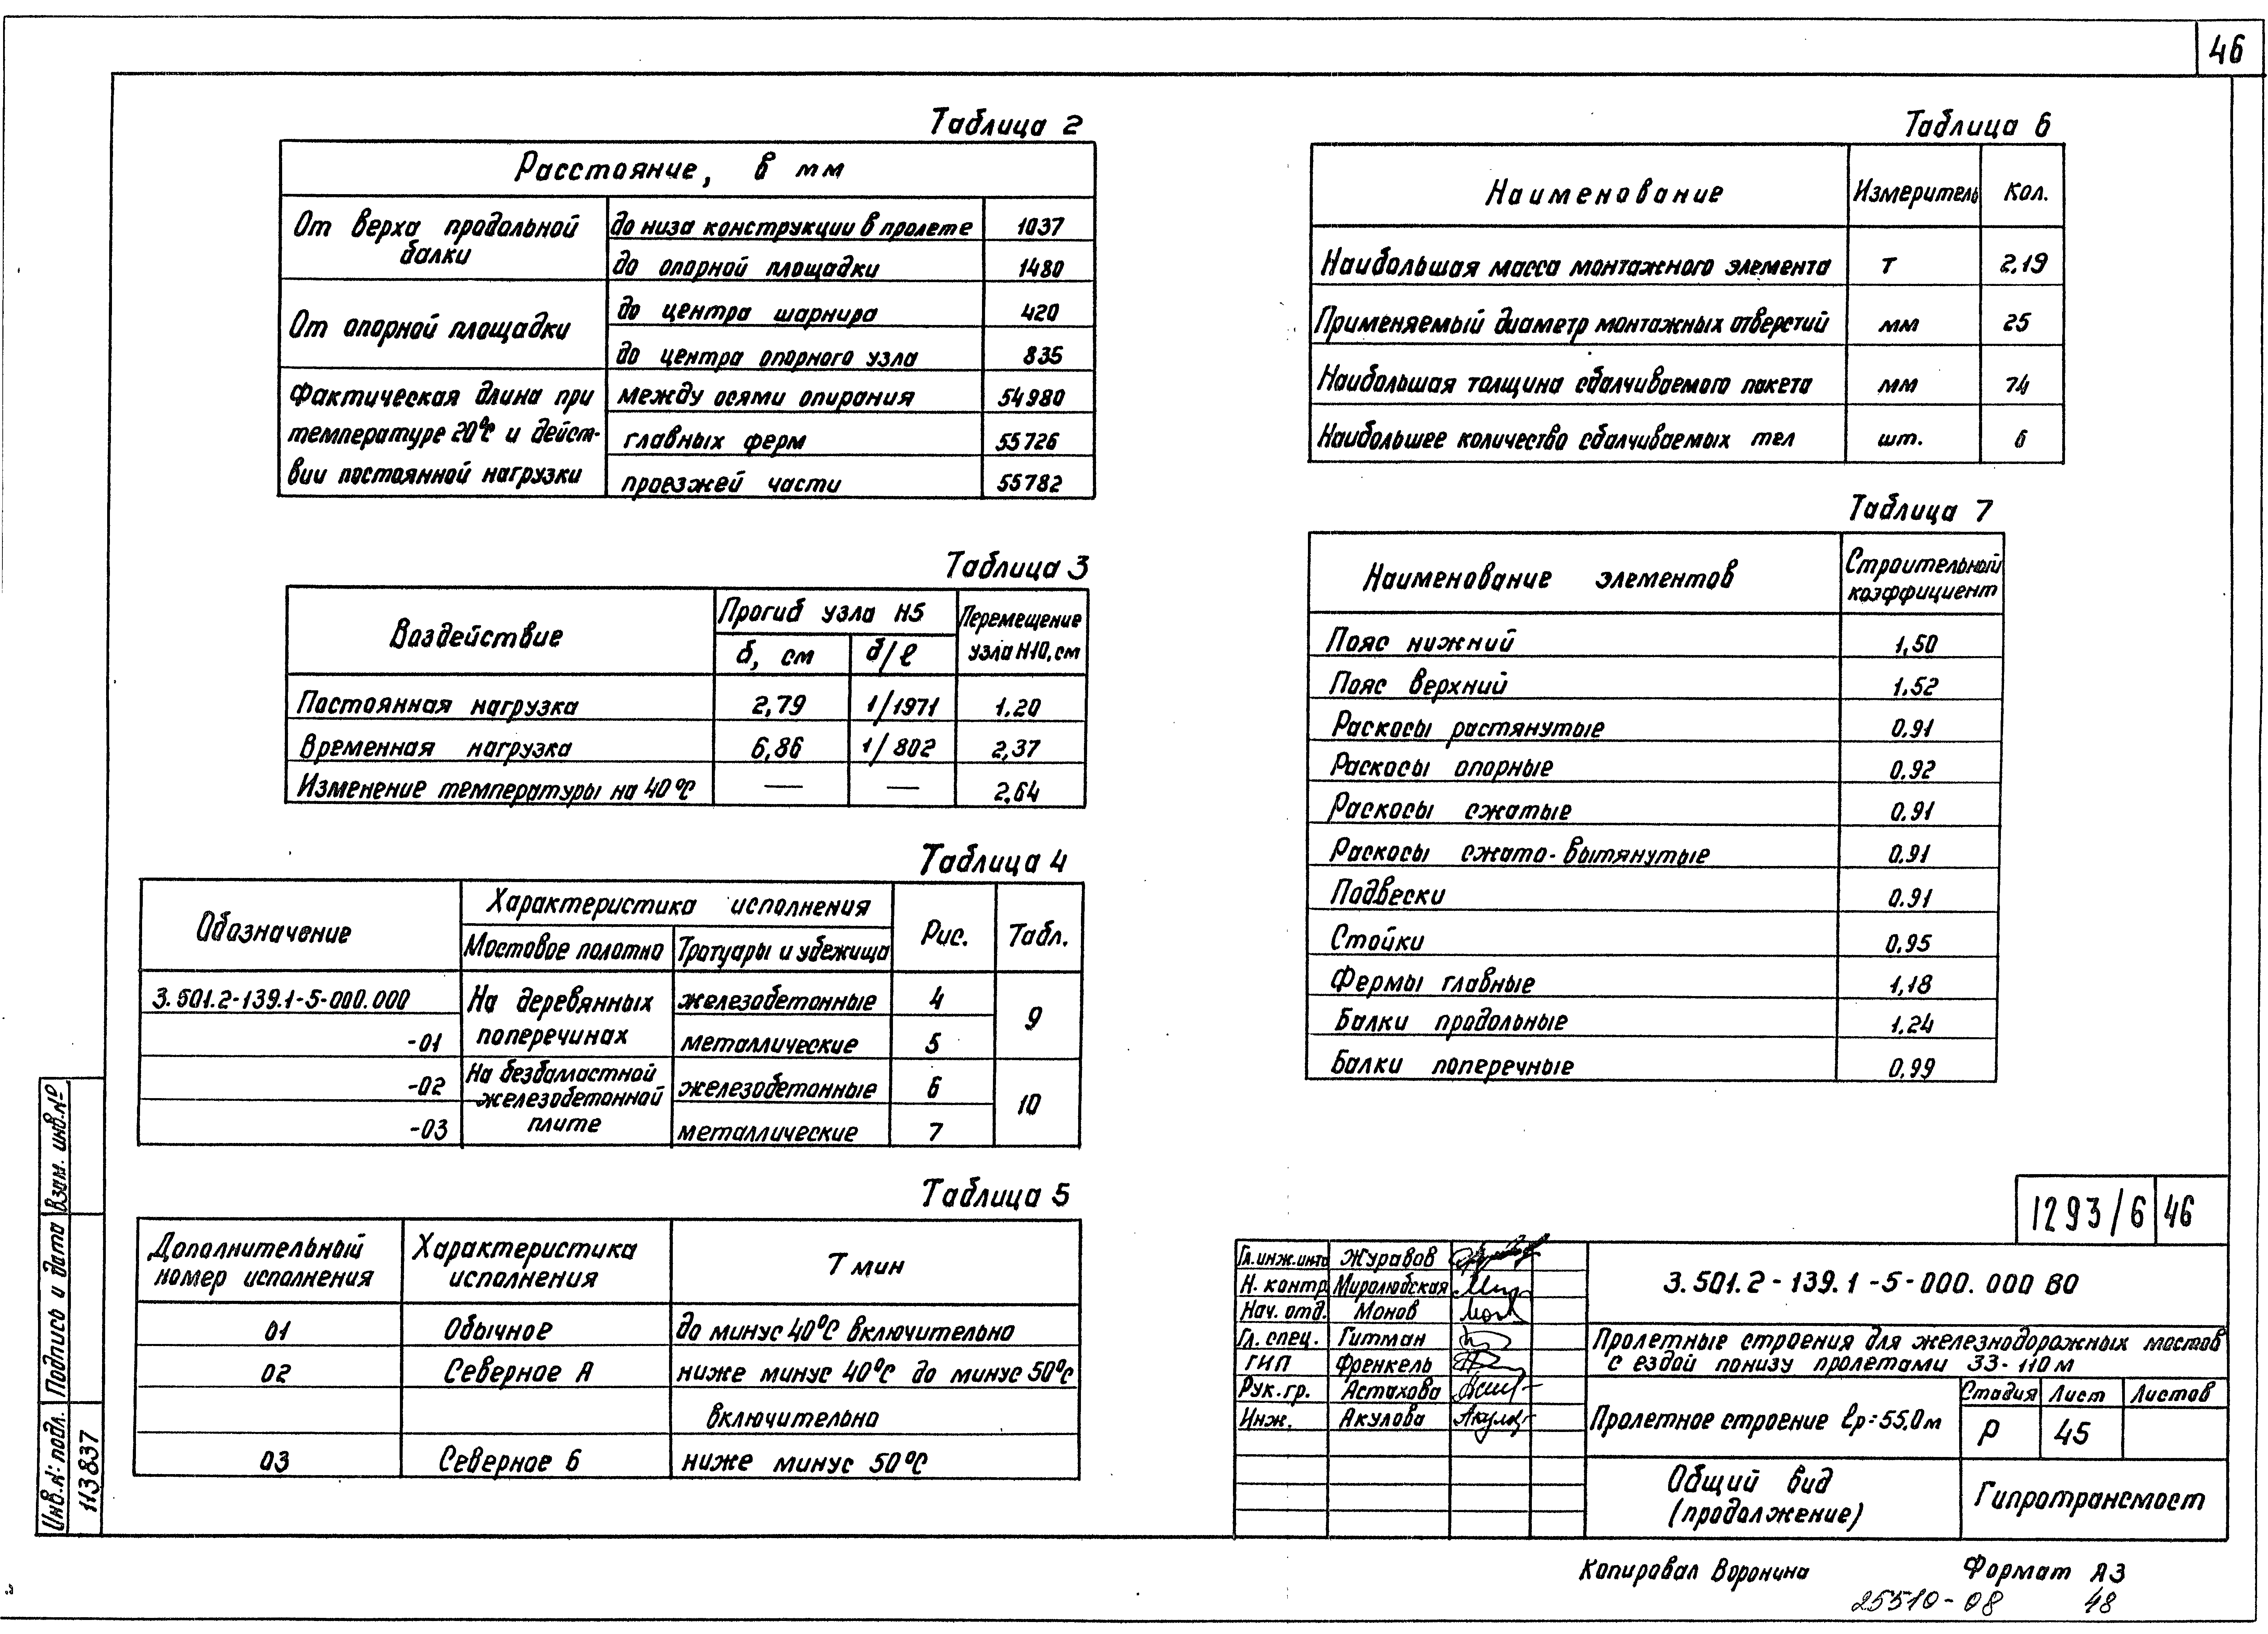 46
Таблица 2
Расстояние, в мм
От верха продольной балки
до низа конструкции в пролете 1037
до опорной площадки 1480
От опорной площадки
до центра шарнира 420
до центра опорного узла 835
Фактическая длина при температуре 20°С и дейст-
вии постоянной нагрузки
между осями опирания 54980
главных ферм 55726
проезжей части 55782
Таблица 3
Воздействие
Прогиб узла Н5
δ, см
δ/ℓ
Перемещение
узла Н10, см
Постоянная нагрузка 2,79 1/1971 1.20
Временная нагрузка 6,86 1/802 2,37
Изменение температуры на 40°С — — 2,64
Таблица 4
Обозначение
Характеристика исполнения
Мостовое полотно
Тротуары и убежища
Рис.
Табл.
3.501.2-139.1-5-000.000
На деревянных
поперечинах
железобетонные 4
9
-01 металлические 5
-02
На безбалластной
железобетонной
плите
железобетонные 6
10
-03 металлические 7
Таблица 5
Дополнительный
номер исполнения
Характеристика
исполнения
Т мин
01 Обычное до минус 40°С включительно
02 Северное А ниже минус 40°С до минус 50°С
включительно
03 Северное Б ниже минус 50°С
Таблица 6
Наименование Измеритель Кол.
Наибольшая масса монтажного элемента т 2,19
Применяемый диаметр монтажных отверстий мм 25
Наибольшая толщина сбалчиваемого пакета мм 74
Наибольшее количество сбалчиваемых тел шт. 6
Таблица 7
Наименование элементов
Строительный
коэффициент
Пояс нижний 1,50
Пояс верхний 1.52
Раскосы растянутые 0.91
Раскосы опорные 0.92
Раскосы сжатые 0.91
Раскосы сжато-вытянутые 0.91
Подвески 0.91
Стойки 0.95
Фермы главные 1,18
Балки продольные 1.24
Балки поперечные 0,99
1293/6 46
Гл. инж. инта Журавов
Н. контр. Миролюбская
Нач. отд. Монов
Гл. спец. Гитман
ГИП Френкель
Рук. гр. Астахова
Инж. Акулова
3.501.2-139.1-5-000.000 ВО
Пролетные строения для железнодорожных мостов
с ездой понизу пролетами 33-110 м
Пролетное строение ℓр=55,0м
Стадия Лист Листов
Р 45
Общий вид
(продолжение)
Гипротрансмост
Копировал Воронина Формат А3
25510-08 48
Взам. инв.№
Подпись и дата
Инв.№ подл.
113837